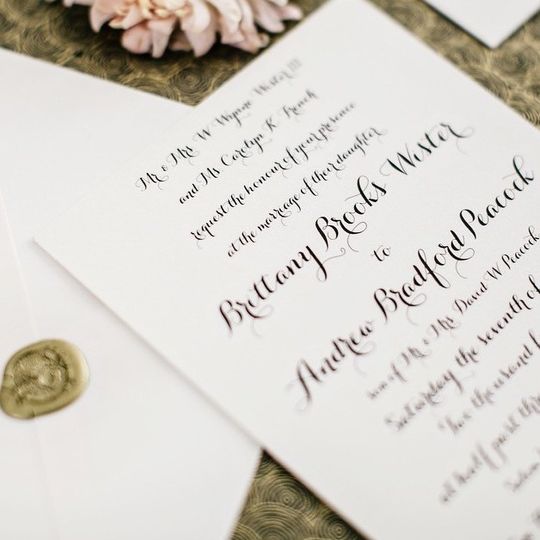 Mr. & Mrs. W. Wynne Wester III
and Ms. Carolyn K. French
request the honour of your presence
at the marriage of their daughter
Brittany Brooks Wester
to
Andrew Bradford Peacock
son of Mr. & Mrs. David W. Peacock
Saturday, the seventh of
Two thousand
at half past